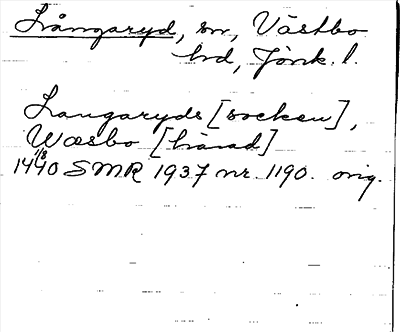 Långaryd, sn, Västbo
hd, Jönk. l.
Langaryds [socken],
Wæsbo [härad]
1/8
1440 SMR 1937 nr. 1190. orig.